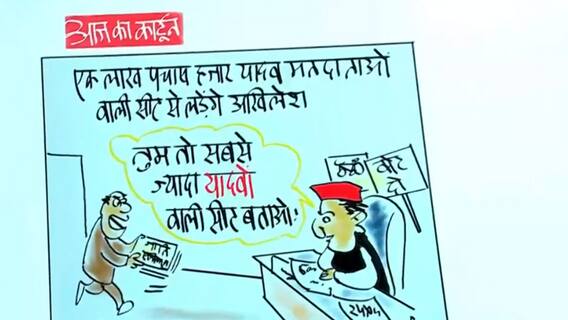 आज का कार्टून
एक लाख पचास हजार यादव मतदाताओं
वाली सीट से लड़ेंगे अखिलेश
तुम तो सबसे
ज्यादा यादवों
वाली सीट बताओ!
वोट
दो
जाति